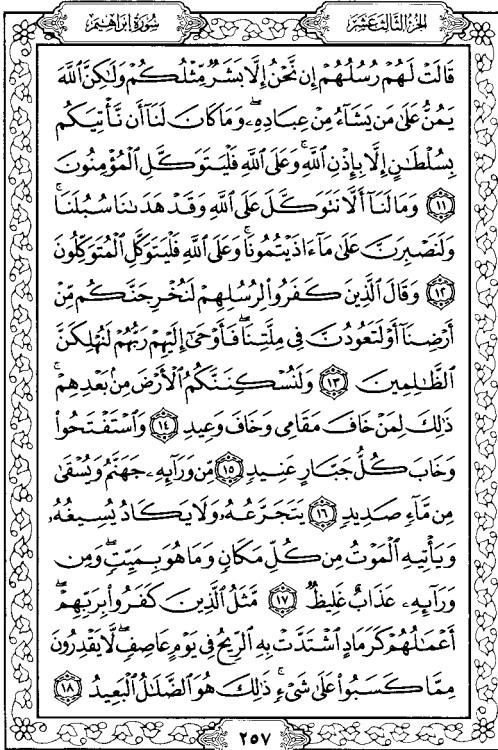 الجزء الثالث عشر
سورة إبراهيم
قَالَتْ لَهُمْ رُسُلُهُمْ إِن نَّحْنُ إِلَّا بَشَرٌ مِّثْلُكُمْ وَلَٰكِنَّ اللَّهَ
يَمُنُّ عَلَىٰ مَن يَشَاءُ مِنْ عِبَادِهِ ۖ وَمَا كَانَ لَنَا أَن نَّأْتِيَكُم
بِسُلْطَانٍ إِلَّا بِإِذْنِ اللَّهِ ۚ وَعَلَى اللَّهِ فَلْيَتَوَكَّلِ الْمُؤْمِنُونَ
۝١١ وَمَا لَنَا أَلَّا نَتَوَكَّلَ عَلَى اللَّهِ وَقَدْ هَدَانَا سُبُلَنَا ۚ
وَلَنَصْبِرَنَّ عَلَىٰ مَا آذَيْتُمُونَا ۚ وَعَلَى اللَّهِ فَلْيَتَوَكَّلِ الْمُتَوَكِّلُونَ
۝١٢ وَقَالَ الَّذِينَ كَفَرُوا لِرُسُلِهِمْ لَنُخْرِجَنَّكُم مِّنْ
أَرْضِنَا أَوْ لَتَعُودُنَّ فِي مِلَّتِنَا ۖ فَأَوْحَىٰ إِلَيْهِمْ رَبُّهُمْ لَنُهْلِكَنَّ
الظَّالِمِينَ ۝١٣ وَلَنُسْكِنَنَّكُمُ الْأَرْضَ مِن بَعْدِهِمْ ۚ
ذَٰلِكَ لِمَنْ خَافَ مَقَامِي وَخَافَ وَعِيدِ ۝١٤ وَاسْتَفْتَحُوا
وَخَابَ كُلُّ جَبَّارٍ عَنِيدٍ ۝١٥ مِّن وَرَائِهِ جَهَنَّمُ وَيُسْقَىٰ
مِن مَّاءٍ صَدِيدٍ ۝١٦ يَتَجَرَّعُهُ وَلَا يَكَادُ يُسِيغُهُ
وَيَأْتِيهِ الْمَوْتُ مِن كُلِّ مَكَانٍ وَمَا هُوَ بِمَيِّتٍ ۖ وَمِن
وَرَائِهِ عَذَابٌ غَلِيظٌ ۝١٧ مَّثَلُ الَّذِينَ كَفَرُوا بِرَبِّهِمْ ۖ
أَعْمَالُهُمْ كَرَمَادٍ اشْتَدَّتْ بِهِ الرِّيحُ فِي يَوْمٍ عَاصِفٍ ۖ لَّا يَقْدِرُونَ
مِمَّا كَسَبُوا عَلَىٰ شَيْءٍ ۚ ذَٰلِكَ هُوَ الضَّلَالُ الْبَعِيدُ ۝١٨
٢٥٧